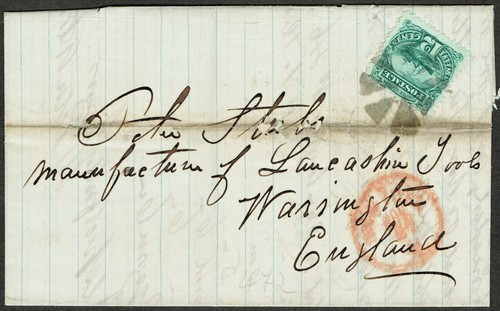 POSTAGE
CENTS
Peter Stubs
manufacture of Lancashire Tools
Warrington
England